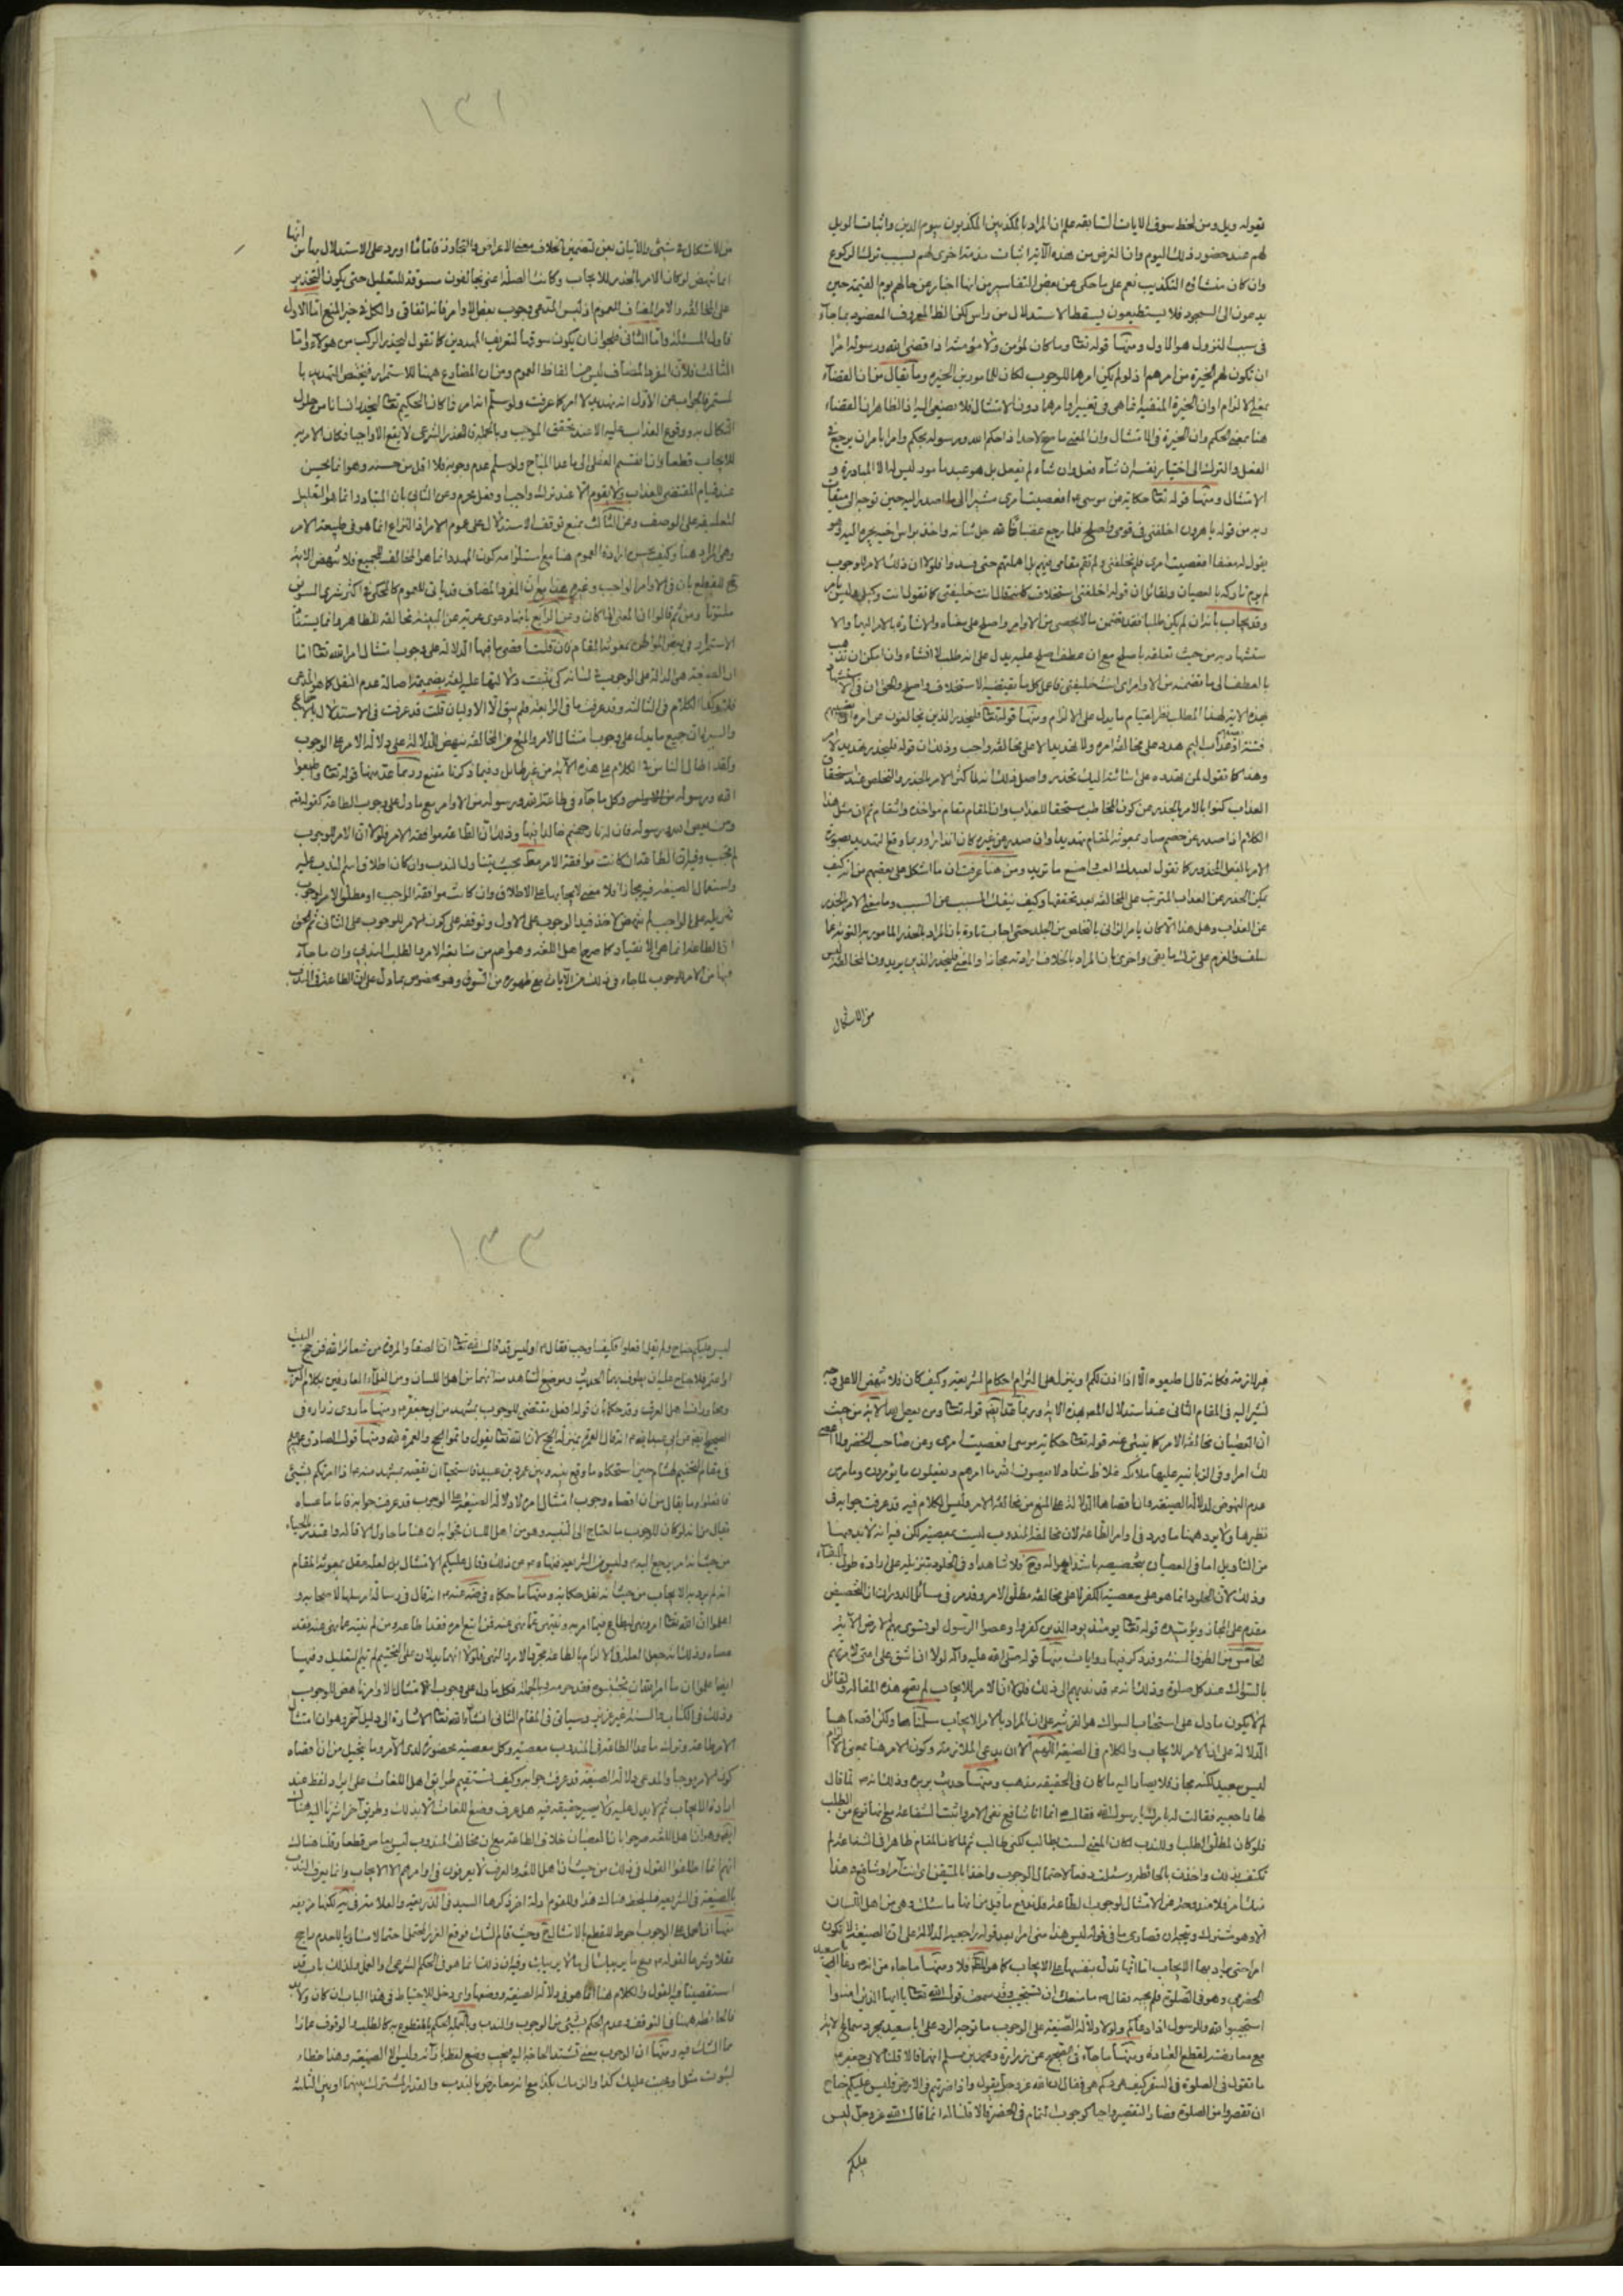 بقوله ويل ومن لحظ سوق الايات السابقه علم ان المراد بالمكذبين المكذبون بيوم الدين واثبات الويل
لهم عند حضور ذلك اليوم وان الغرض من هذه الآية اثبات مذمة اخرى لهم بسبب ترك الركوع
وان كان منشاؤه التكذيب نعم على ما حكى عن بعض التفاسير من انها اخبار عن حالهم يوم القيمة حين
يدعون الى السجود فلا يستطيعون يسقط الاستدلال من راس لكن الظ المعروف المعضود بما جآء
فى سبب النزول هو الاول ومنها قوله تعا وما كان لمؤمن ولا مؤمنة اذا قضى الله ورسوله امرا
ان تكون لهم الخيرة من امرهم اذ لو لم يكن امرهما للوجوب لكان للمامورين الخيره وما يقال من ان القضآء
بمعنى الالزام او ان الخيرة المنفية انما هى فى تغيير امرهما دون الامتثال فلا يصغى اليه اذ الظاهر ان القضاء
هنا بمعنى الحكم وان الخيرة فى الامتثال وان المعنى ما صح لاحد اذا حكم الله ورسوله بحكم وامرا بامر ان يرجع فى
الفعل والترك الى اختيار نفسه ان شآء فعل وان شاء لم يفعل بل هو عبد مامور ليس له الا المبادرة و
الامتثال ومنها قوله تعا حكاية عن موسى ع افعصيت امرى مشيرا الى ما اصدر اليه حين توجه الى ميقات
ربه من قوله يا هرون اخلفنى فى قومى واصلح فلما رجع غضبانا لله جل شانه واخذ براس اخيه يجره اليه وهو
يقول له معنفا افعصيت امرى فلم تخلفنى ولم تقم مقامى فيهم بل اهملتهم حتى فسدوا فلولا ان ذلك الامر للوجوب
لم يوم تاركه بالعصيان ولقائل ان قوله اخلفنى استخلاف كانت خليفتى كما تقول انت وكيلى فليس بامر
وقد يجاب بانه ان لم يكن طلبا فقد تضمن ما لا يحصى من الاوامر واصلح على معناه والاشارة بالامر اليها والا
ستشهاد به من حيث تعلقه باصلح مع ان عطف اصلح عليه يدل على انه طلب لا افشاء وان امكن ان تذهب
بالعطف الى ما تضمنه من الاوامر اى انت خليفتى فاعمل كل ما يقتضيه الاستخلاف واصلح والحق ان فى الاستشهاد
بهذه الاية لهذا المطلب نظر لقيام ما يدل على الالزام ومنها قوله تعا فليحذر الذين يخالفون عن امره ان تصيبهم
فتنة او عذاب اليم هدد على مخالفة امره ولا تهديد الا على مخالفة واجب وذلك ان قوله فليحذر تهديد لامر
وهذا كما تقول لمن تهدده على اسائة اليك تحذر واصل ذلك انه لما كنى الامر بالحذر والتخلص عند استحقاق
العذاب كنوا بالامر بالحذر عن كون المخاطب مستحقا للعذاب وان المقام مقام مواخذة وانتقام ثم ان مثل هذا
الكلام اذا صدر عن خصم صار بمعونة المقام تهديدا وان صدر عن غيره كان انذارا وربما وقع التهديد بصورة
الامر بالفعل المحذور كما تقول لعبدك العب واصنع ما تريد ومن هنا عرفت ان ما اشكل على بعضهم من انه كيف
يمكن الحذر عن العذاب المترتب على المخالفة بعد تحققها وكيف ينفك المسبب عن السبب وما معنى الامر بالحذر
عن العذاب وهل هذا الا كان يامر الزانى بالتخلص من الجلد حتى اجاب تارة بان المراد بالحذر المامور به التوبة عما
سلف والعزم على ترك ما بقى واخرى بان المراد بالخلاف ارادته مجازا والمعنى فليحذر الذين يريدون المخالفة ليس
من الاشكال فى
١٣١
من الاشكال فى شئ والآيات بعن لتضمين الخلاف معنى الاعراض والتجاوز فاما ما اورد على الاستدلال بها من انها
انما تنهض لو كان الامر بالحذر للايجاب وكانت الصلة اعنى يخالفون مسوقة للتعليل حتى يكون التحذير
على المخالفة والامر المضاف للعموم اذ ليس المدعى وجوب بعض الاوامر فانه اتفاقى والكل فى حيز المنع اما الاول
فاول المسئلة واما الثانى فلجواز ان يكون سوقها لتعريف المهددين كما تقول ليحذر الركب من هولآء واما
الثالث فلان المفرد المضاف ليس من الفاظ العموم ومن ان المضارع هيهنا للاستمرار فيختص التهديد با
لمستمر فالجواب عن الاول انه تهديد لا امر كما عرفت ولو سلم انه امر فما كان الحكيم تعا ليحذر انسانا من حلول
النكال به ووقوع العذاب عليه الا عند تحقق الموجب وبالجملة فالحذر الشرعى لا يقع الا واجبا فكان الامر به
للايجاب قطعا وانما ينقسم العقلى الى ما عدا المباح ولو سلم عدم وجوبه فلا اقل من حسنه وهو انما يحسن
عند قيام المقتضى للعذاب ولا يقوم الا عند ترك واجب او فعل محرم وعن الثانى بان المتبادر انما هو التعليل
لتعليقه على الوصف وعن الثالث بمنع توقف الاستدلال على عموم الامر اذ النزاع انما هو فى طبيعة الامر
وهى المراد هنا وكيف يحسن ارادة العموم هنا مع استلزامه كون المهدد انما هو المخالف للجميع فلا تنهض الاية
مع القطع بان فى الاوامر الواجب وغيره هذا مع ان المفرد المضاف قد ياتى للعموم كالمحكى فى اكثر شربى السويق
ملتوتا ومن ثم قالوا ان المعنى ايا كان وعن الرابع بانها دعوى عرية عن البينة مخالفة للظاهر وانما يستفاد
الاستمرار فى بعض المواطن بمعونة المقام فان قلت اقصى ما فيها الدلالة على وجوب امتثال امر الله تعا اما
ان الصيغة هى الدالة على الوجوب فى لسانه كى يثبت دلالتها عليه لغة بضميمة اصالة عدم النقل كما هو المدعى
فلا وهكذا الكلام فى الثالثة وقد عرفت ما فى الرابعة فلم يبق الا الاوليان قلت قد عرفت فى الاستدلال بالاجماع
والسيرة ان جميع ما يدل على وجوب امتثال الامر والمنع عن المخالفة ينهض بالدلالة على دلالة الامر على الوجوب
ولقد اطال الناس فى الكلام على هذه الآية من غير طايل وفيما ذكرنا مقنع وربما عد منها قوله تعا واطيعوا
الله ورسوله من الاوامر وكل ما جآء فى طاعة الله ورسوله من الاوامر مع ما دل على وجوب الطاعة كقوله تع
ومن يعص الله ورسوله فان له نار جهنم خالدا فيها وذلك ان الطاعة موافقة الامر فلولا ان الامر للوجوب
لم تجب وفيه ان الطاعة ان كانت موافقة الامر مطلقا بحيث يتناول الندب وان كان اطلاق اسم الندب عليه
واستعمال الصيغة فيه مجازا فلا معنى لايجابها على الاطلاق وان كانت موافقة الواجب او مطلق الامر لوجوب
تنزيله على الواجب لم تنهض لاخذ قيد الوجوب على الاول وتوقفه على كون الامر للوجوب على الثانى ثم الحق
ان الطاعة انما هى الانقياد كما صرح اهل اللغة وهو اعم من متابعة الامر والطلب الندبى وان ما جآء
فيها من الامر للوجوب لما جاء فى ذلك من الآيات مع ظهوره من السوق وهو مخصوص بما دل على ان الطاعة فى الندب
غير لازمة فكانه قال اطيعوه الا اذا اذنت لكم او ينزل على التزام احكام الشريعة وكيف كان فلا تنهض الا على وجه
نشير اليه فى المقام الثانى عند استدلال المصـ بهذه الاية وربما عد ايضا قوله تعا ومن يعص الله الآية من حيث
ان العصيان مخالفة الامر كما ينبئ عنه قوله تعا حكاية موسى افعصيت امرى وعن صاحب الخضر ولا اعصى
لك امرا وفى الزبانية عليها ملائكة غلاظ شداد لا يعصون الله ما امرهم ويفعلون ما يؤمرون وما مرى
عدم النهوض لدلالة الصيغة وانما اقصاها الدلالة على المنع من مخالفة الامر وليس الكلام فيه قد عرفت جوابه فى
نظيرها ولا يرد ههنا ما ورد فى اوامر الطاعة لان مخالفة المندوب ليست بمعصية لكن فيه انه لابد ههنا
من التاويل اما فى العصيان بتخصيصه باشد احواله وح فلا شاهد او فى الخلود بتنزيله على ارادة طول البقآء
وذلك لان الخلود انما هو على معصية الكفر لا على مخالفة مطلق الامر وقد مر فى مسائل الدوران ان التخصيص
مقدم على المجاز ويؤيده قوله تعا يومئذ يود الذين كفروا وعصوا الرسول لو تسوى بهم الارض الآية
الخامس من الطرق السنة وقد ذكر فيها روايات منها قوله صلى الله عليه وآله لولا ان اشق على امتى لامرتهم
بالسواك عند كل صلوة وذلك انه ص قد ندبهم الى ذلك فلولا ان الامر للايجاب لم تصح هذه المقالة ولقائل
لم لا يكون ما دل على استحباب السواك هو القرينة على ان المراد بالامر الايجاب سلمنا ها ولكن اقصاها
الدلالة على ان الامر للايجاب والكلام فى الصيغة اللهم الا ان يدعى الملازمة وكون الامر هنا بمعنى الالزام
ليس ببعيد لكنه مجاز فلا يصار اليه ما كان فى الحقيقة مذهب ومنها حديث بريرة وذلك انه ص لما قال
لها راجعيه فقالت له تامرنى يا رسول الله فقال ص انما انا شافع نفى الامر واثبت الشفاعة مع انها نوع من الطلب
فلو كان لمطلق الطلب او للندب لكان المعنى لست بطالب لكنى طالب ثم لما كان المقام ظاهرا فى الشفاعة لم
تكتف بذلك واخذت بالحائطة وسئلت دفعا لاحتمال الوجوب واخذا بالمتيقن اى انت آمر او شافع هذا
منك امر فلا مندوحة عن الامتثال لوجوب الطاعة فاندفع ما قيل من انها ما سئلت وهى من اهل اللسان
الا وهو مشترك ويتجه ان قصارى ما فى قوله ليس هذا منى امرا بعد قوله راجعيه الدلالة على ان الصيغة لا تكون
امرا حتى يراد بها الايجاب اما انها تدل بنفسها على الايجاب كما هو الظ فلا ومنها ما جاء من انه ص دعا ابا سعيد
الخدرى وهو فى الصلوة فلم يجبه فقال ص ما منعك ان تستجيب وقد سمعت قول الله تعا يا ايها الذين امنوا
استجيبوا لله وللرسول اذا دعاكم ولولا دلالة الصيغة على الوجوب ما توجه الرد على ابا سعيد بمجرد سماع الاية
مع معارضته لقطع العبادة ومنها ما جآء فى الصحيح عن زرارة ومحمد بن مسلم انهما قالا قلنا لابى جعفر ع
ما تقول فى الصلوة فى السفر كيف هى وكم هى فقال ان الله عز وجل يقول واذا ضربتم فى الارض فليس عليكم جناح
ان تقصروا من الصلوة فصار التقصير واجبا كوجوب التمام فى الحضر قالا قلنا له انما قال الله عز وجل ليس
عليكم
١٣٣
ليس عليكم جناح ولم يقل افعلوا فكيف اوجب فقال ع اوليس قد قال الله تعا ان الصفا والمروة من شعائر الله فمن حج البيت
او اعتمر فلا جناح عليه ان يطوف بهما الحديث وموضع الشاهد منه انهما من اهل اللسان ومن العلمآء العارفين بكلام العرب
ومحاورات اهل العرف وقد حكما بان قوله افعل مقتضى للوجوب بمشهد من ابى جعفر ع ومنها ما روى زرارة فى
الصحيح ايضا عن ابى عبدالله ع انه قال العمرة بمنزلة الحج لان الله تعا يقول واتموا الحج والعمرة لله ومنها قول الصادق ع
فى مقام التفخيم لهشام حين استحكاه ما وقع بينه وبين عمرو بن عبيد فاستحيا ان نقصه بمشهد منه ع اذا امرتكم بشئ
فافعلوا وما يقال من ان اقصاه وجوب امتثال امره لا دلالة الصيغة على الوجوب قد عرفت جوابه فاما ما عساه
يقال من انه لو كان للوجوب ما احتاج الى التنبيه وهو من اهل اللسان فجوابه ان هشاما حاول الاقالة واعتذر بالحياء
من حيث انه امر يرجع اليه ع وليس من الشريعة فنهاه ع عن ذلك وقال عليكم الامتثال بل لعله عقل بمعونة المقام
انه لم يرد به الايجاب من حيث انه نقل حكاية ومنها ما حكاه فى عنه ع انه قال فى رسالة ارسلها لاصحابه و
اعلموا ان الله تعا امر ونهى ليطاع فيما امر به ولينتهى عما نهى عنه فمن اتبع امره فقد اطاعه ومن لم ينته عما نهى عنه فقد
عصاه وذلك انه جعل العلة فى الالزام بالطاعة مجرد الامر والنهى فلولا انهما يدلان على التحتيم لم يتم التعليل وفيها
ايضا على ان ما امر الله ان تجتنبوه فقد حرمه وبالجملة فكل ما دل على وجوب امتثال الاوامر ناهض للوجوب
وذلك فى الكتاب والسنة غير عزيز وسياتى فى المقام الثانى انشآء الله تعا الاشارة الى دليل آخر وهو ان امتثال
الامر طاعة وترك ما عدا الطاعة فى المندوب معصية وكل معصية محضورة لدى الآمر وما يتخيل من ان اقصاه
كون الامر موجبا والمدعى دلالة الصيغة قد عرفت جوابه وكيف تستقيم طرايق اهل اللغات على ايراد لفظ عند
ارادة الايجاب ثم لا يدل عليه ولا يصير حقيقة فيه هل عرف وضع اللغات الا بذلك وطريق آخر اشرنا اليه هناك
ايضا وهو ان اهل اللغة صرحوا بان العصيان خلاف الطاعة مع ان مخالف المندوب ليس بعاص قطعا وقلنا هنالك
انهم انما اطلقوا القول فى ذلك من حيث ان اهل اللغة والعرف لا يعرفون فى اوامرهم الا الايجاب وانما يعرف الندب
بالصيغة فى الشريعة فليلحظ هنالك هذا وللقوم ادلة اخر ذكرها السيد فى الذريعة والعلامة فى يه لكنها مزيفة
منها ان الحمل على الوجوب احوط للقطع بالامتثال ح وحيث قام الشك فوقع الضرر المحتمل احتمالا مساويا للعدم راجح
عقلا وشرعا لقوله ص دع ما يريبك الى ما لا يريبك وفيه ان ذلك انما هو فى الحكم الشرعى والعمل ولذلك باب قد
استقصينا فيه القول والكلام هنا انما هو فى دلالة الصيغة ووضعها واى دخل للاحتياط فى هذا الباب ان كان ولابد
فالحائطة ههنا فى التوقف وعدم الحكم بشئ من الوجوب والندب وبالجملة الحكم بالمقطوع به كالطلب والوقوف عما زاد
مما الشك فيه ومنها ان الوجوب معنى تشتد الحاجة اليه فيجب وضع لفظ بازآئه وليس الا الصيغة وهذا خطاء
لثبوت مثل اوجبت عليك كذا والزمتك بكذا مع انه معارض بالندب والقدر المشترك بينهما او بين الثلثة